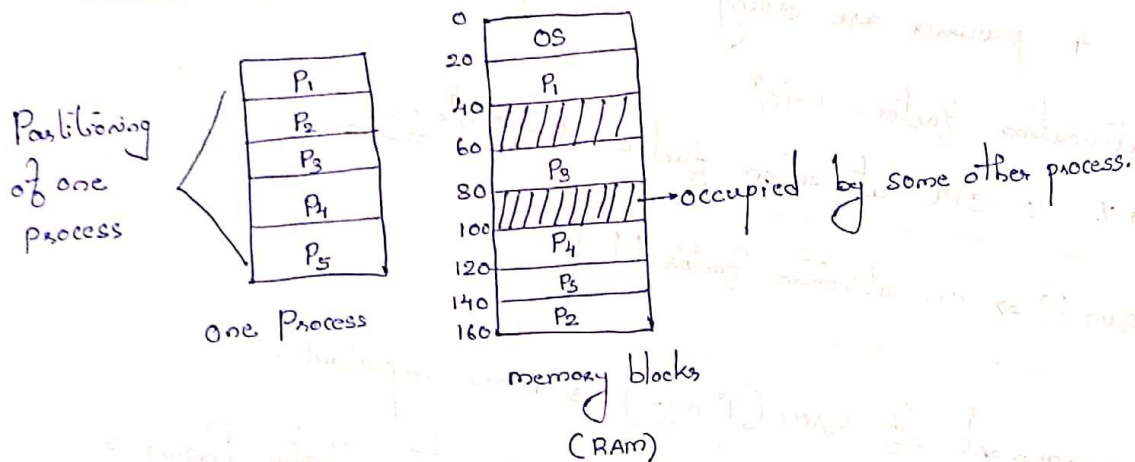 Partitioning
of one
process
P1
P2
P3
P4
P5
one Process
0
20
40
60
80
100
120
140
160
OS
P1
P3
P4
P5
P2
→occupied by some other process.
memory blocks
(RAM)